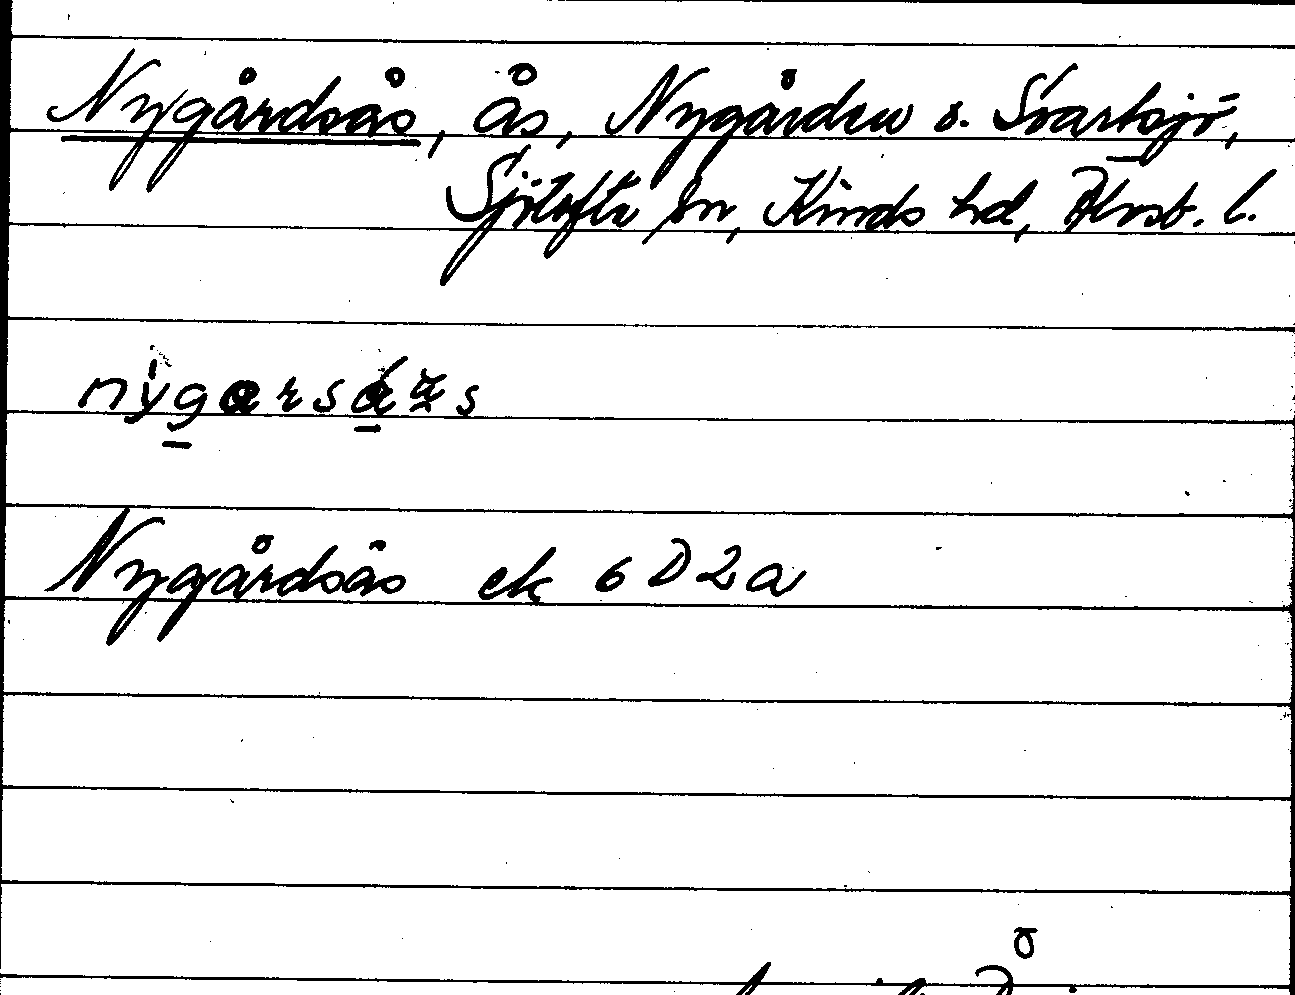 Nygårdsås, ås, Nygården o. Svartsjö,
Sjötofta sn, Kinds hd, Älvsb. l.
Nygårdsås ek 6D2a